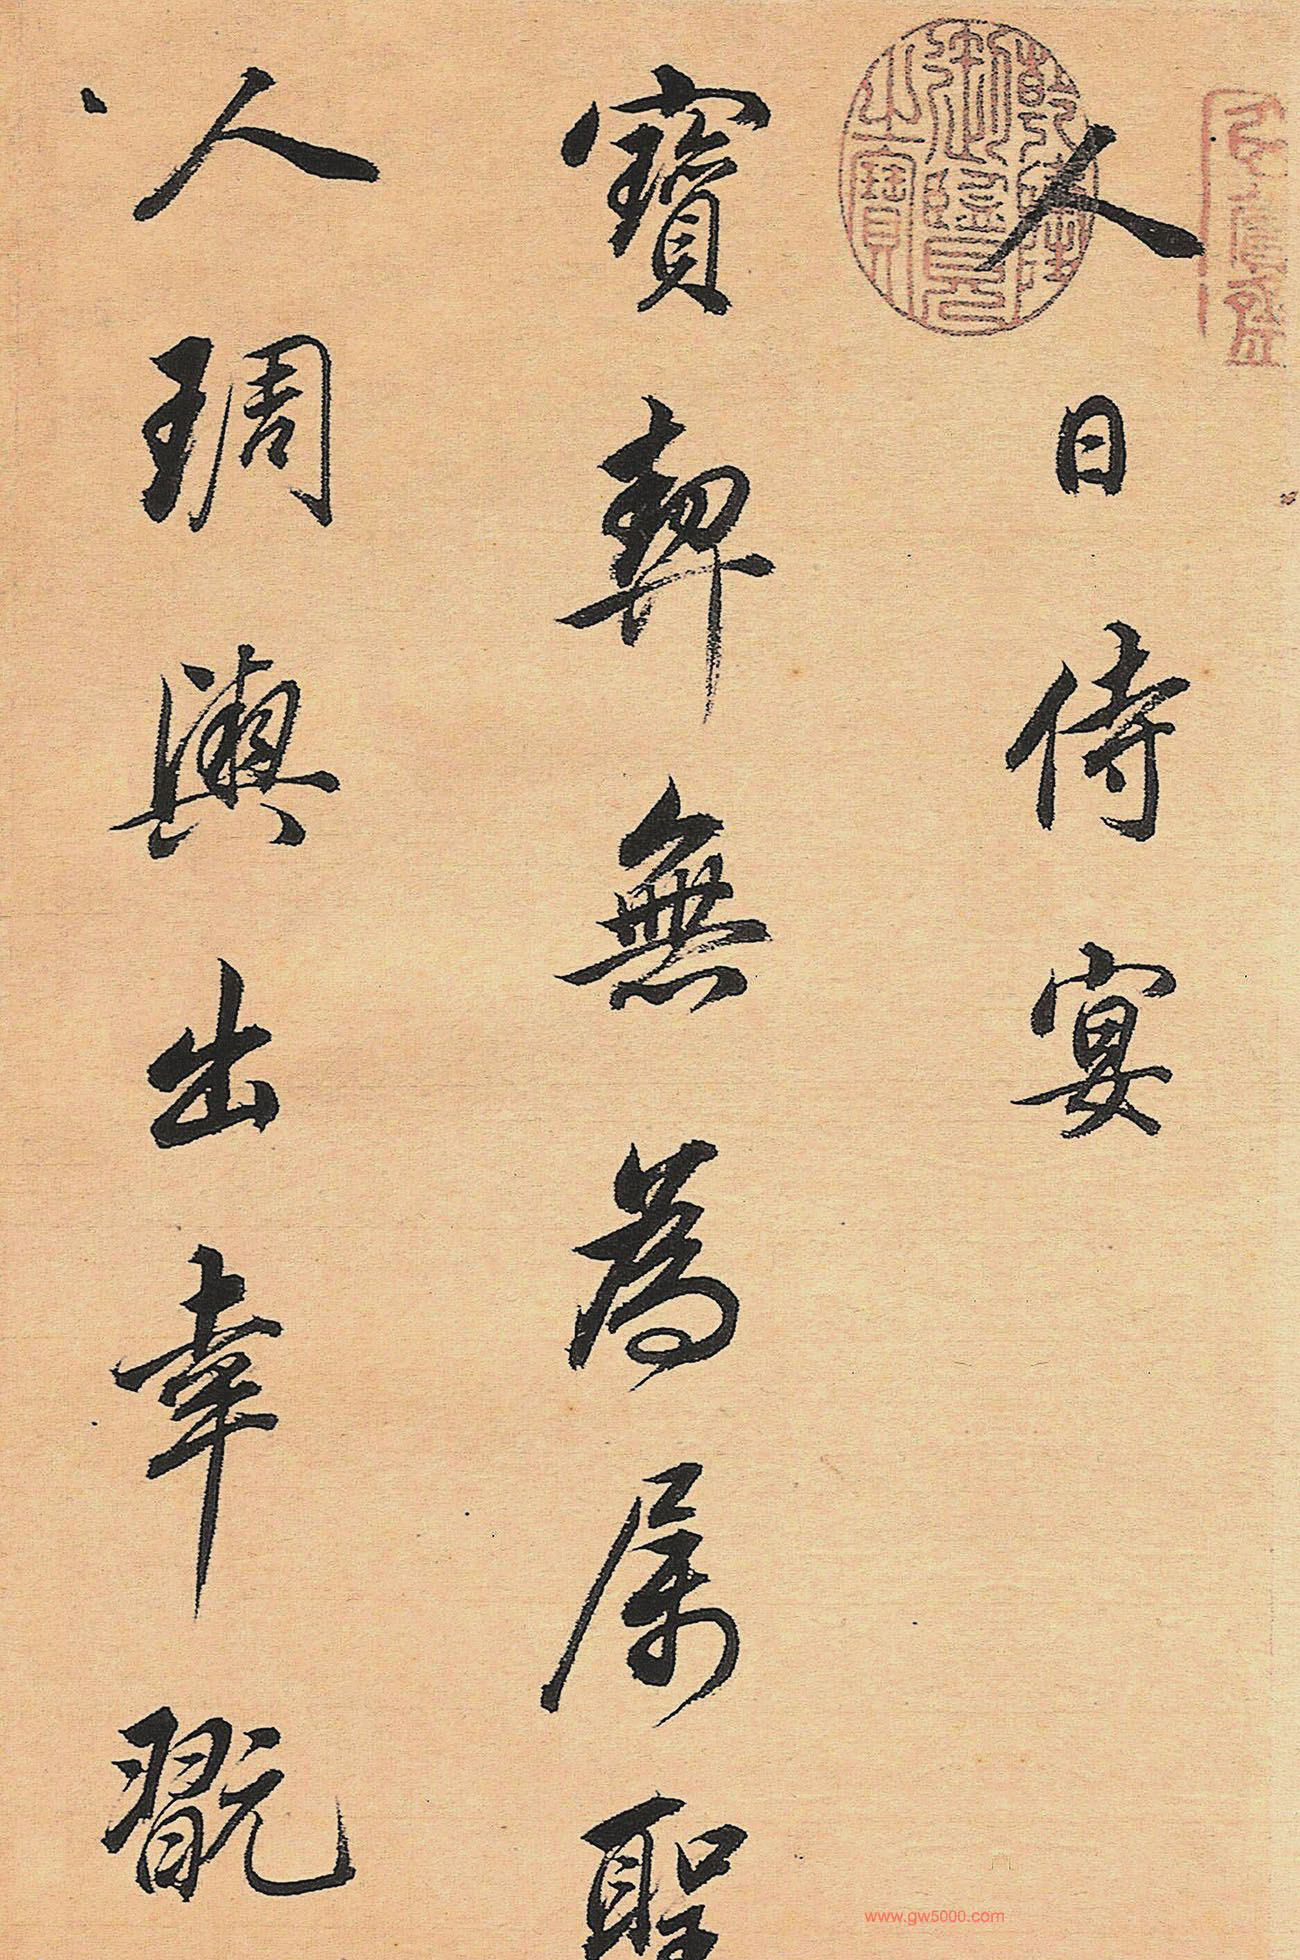 人日侍宴
寶契無為屬聖
人琱輿出幸翫
乾隆御覽之寶
www.gw5000.com